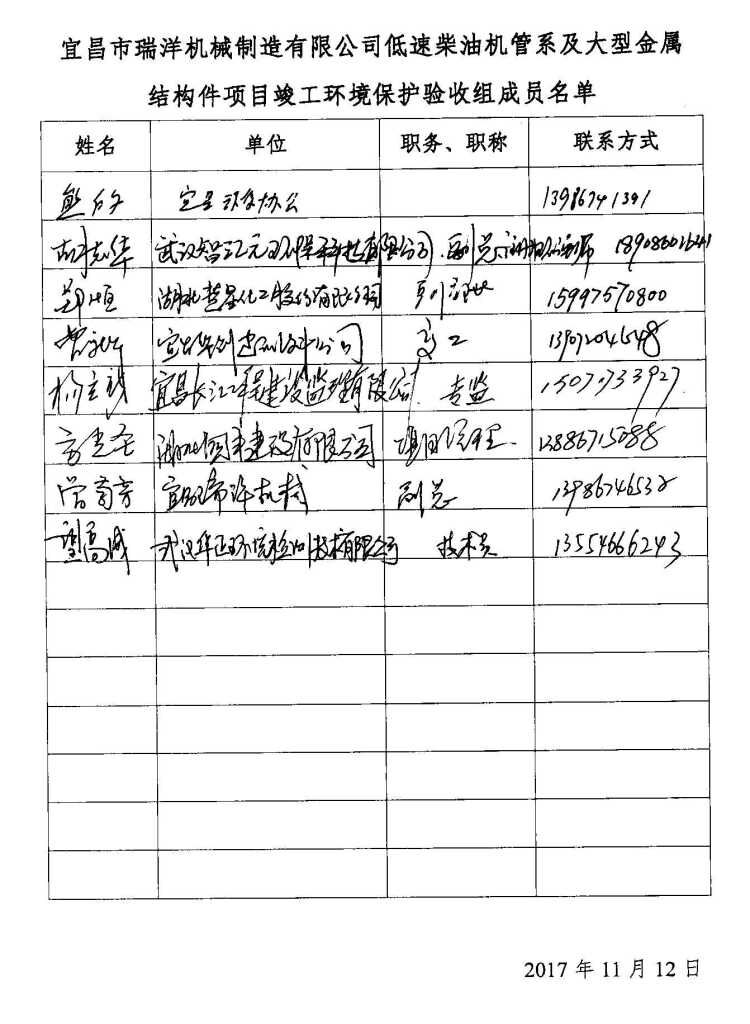 宜昌市瑞洋机械制造有限公司低速柴油机管系及大型金属
结构件项目竣工环境保护验收组成员名单
姓名 单位 职务、职称 联系方式
熊 宜昌 办公 13986741391
胡志华 武汉智汇元环保科技有限公司 副总 18908601641
郑恒 湖北楚星化工股份有限公司 15997570800
宜 公司 高工 13907204548
杨 宜昌长江工程建设监理有限公司 专监 15071733927
方 湖北 建设有限公司 项目经理 13886715088
曾菊芳 宜昌瑞洋机械 副总 13986746532
望高成 武汉华正环境检测技术有限公司 技术员 13554666243
2017 年 11 月 12 日